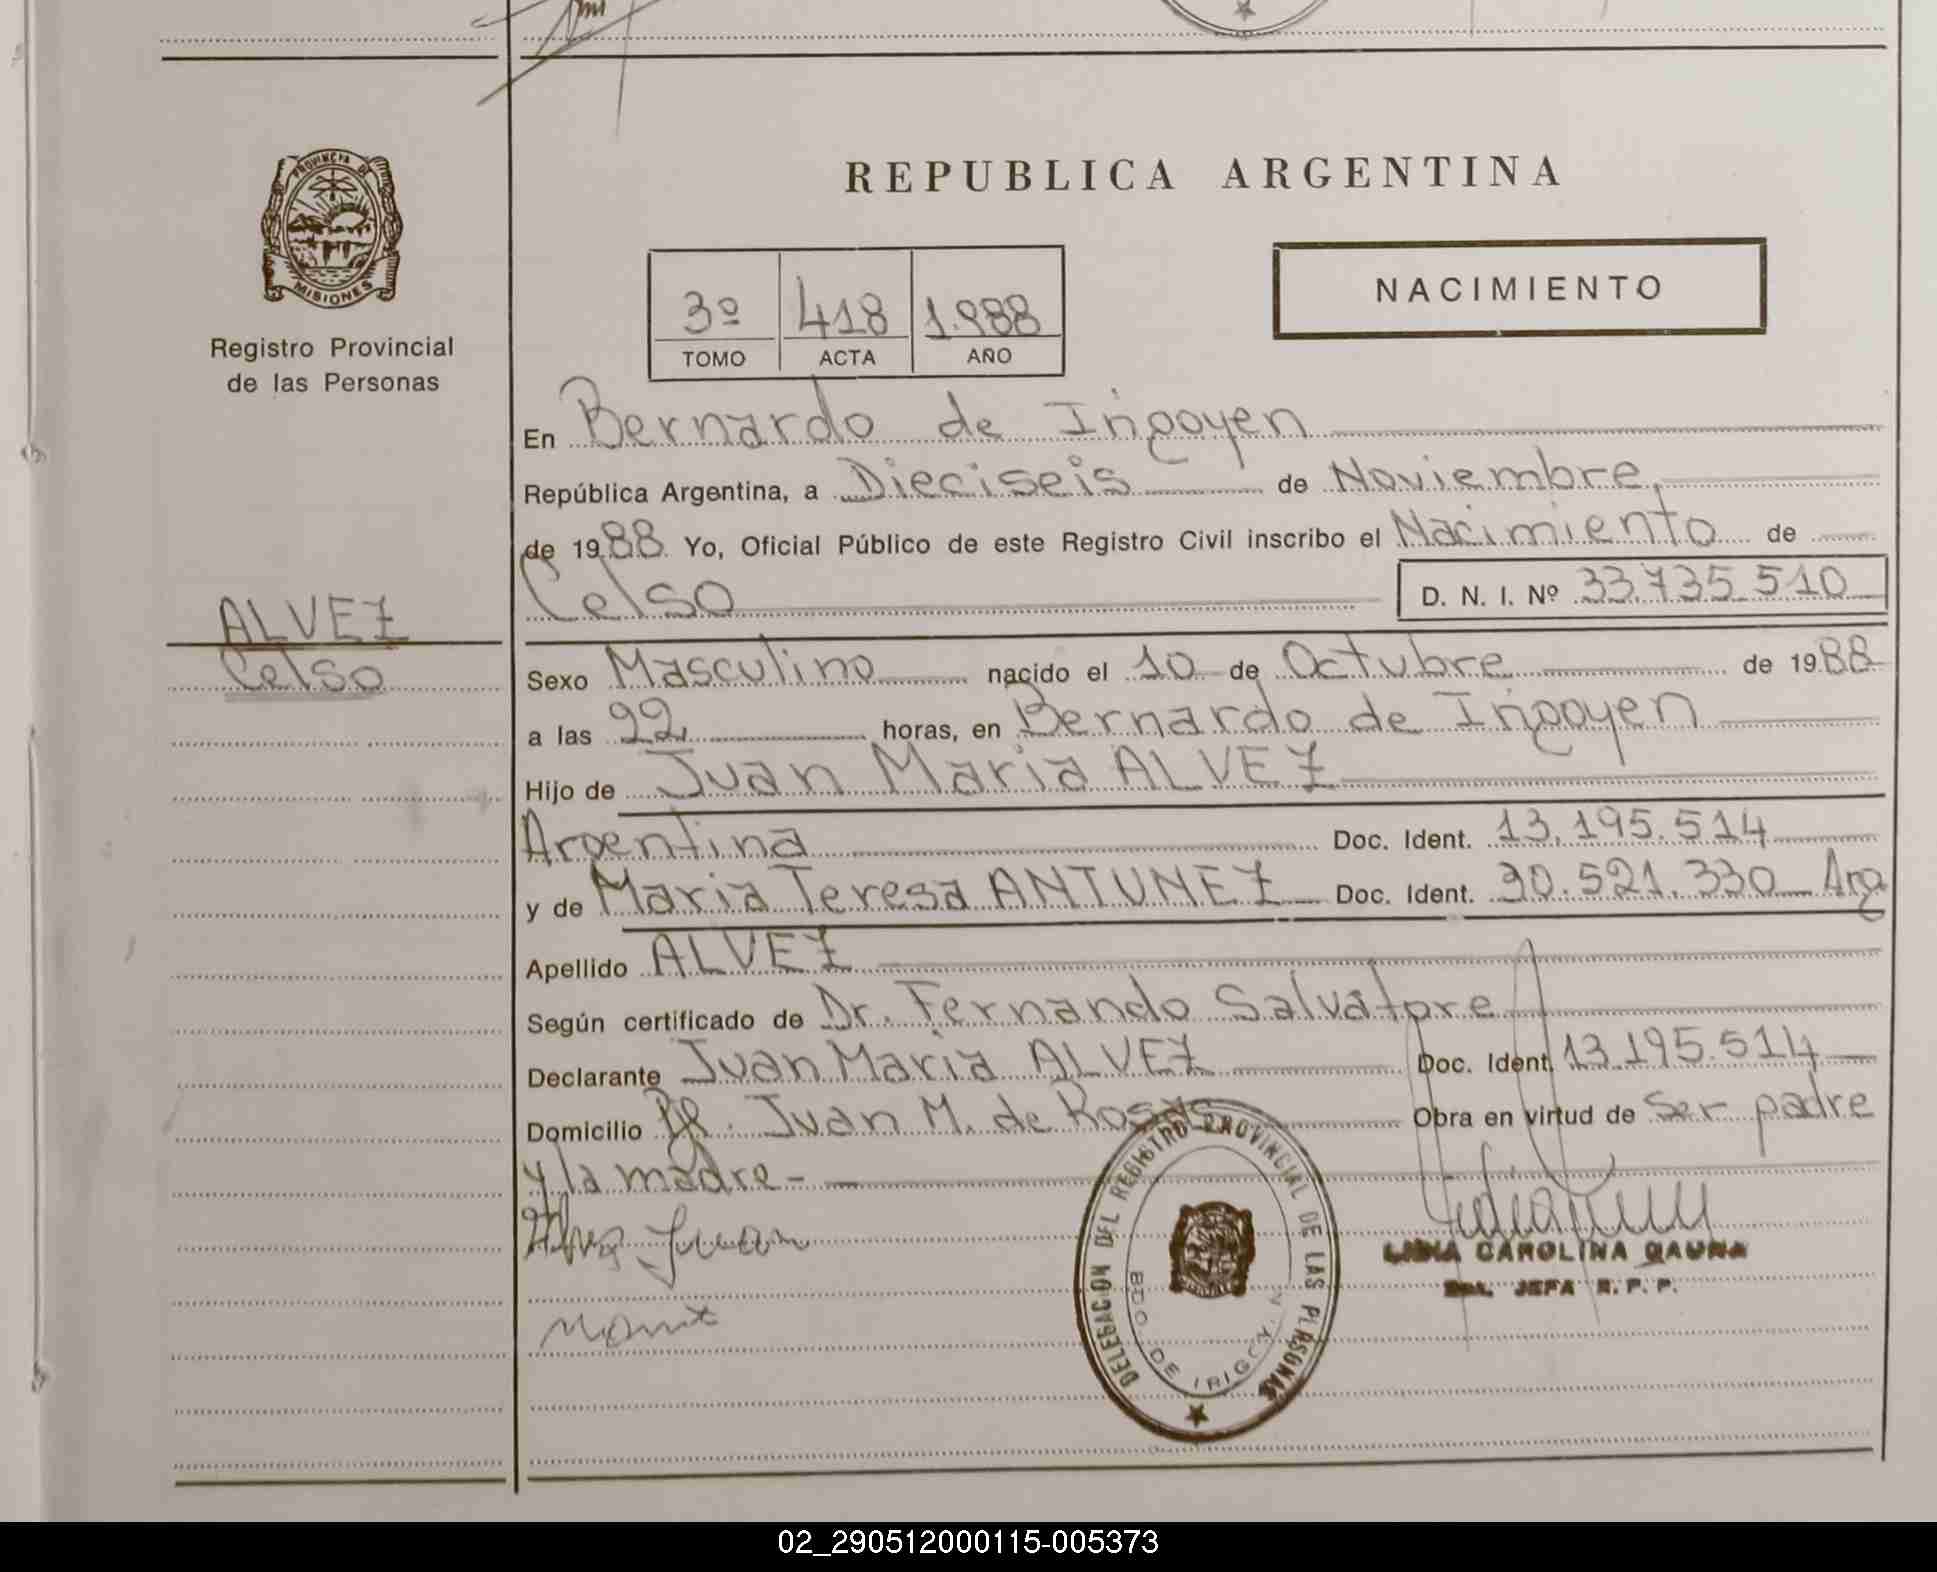 PROVINCIA DE
MISIONES
Registro Provincial
de las Personas
REPUBLICA ARGENTINA
3º 418 1.988
TOMO ACTA AÑO
NACIMIENTO
En Bernardo de Irigoyen
República Argentina, a Dieciseis de Noviembre,
de 1988 Yo, Oficial Público de este Registro Civil inscribo el Nacimiento de
Celso D. N. I. Nº 33.735.510
ALVEZ
Celso
Sexo Masculino nacido el 10 de Octubre de 1988
a las 22 horas, en Bernardo de Irigoyen
Hijo de Juan Maria ALVEZ
Argentina Doc. Ident. 13.195.514
y de Maria Teresa ANTUNEZ Doc. Ident. .521.330 Arg
Apellido ALVEZ
Según certificado de Dr. Fernando Salvatore
Declarante Juan Maria ALVEZ Doc. Ident. 13.195.514
Domicilio Juan M. de Rosas Obra en virtud de ser padre
y la madre -
Juan
DELEGACION DEL REGISTRO PROVINCIAL DE LAS PERSONAS
BDO. DE IRIGOYEN
LIDIA CAROLINA GAUNA
JEFA R. P. P.
02_290512000115-005373